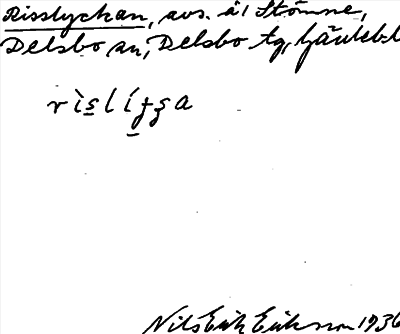 Risslyckan, avs. å/ Stömne,
Delsbo sn, Delsbo tg, Gävleb. l
Nils Erik Eriksson 1936